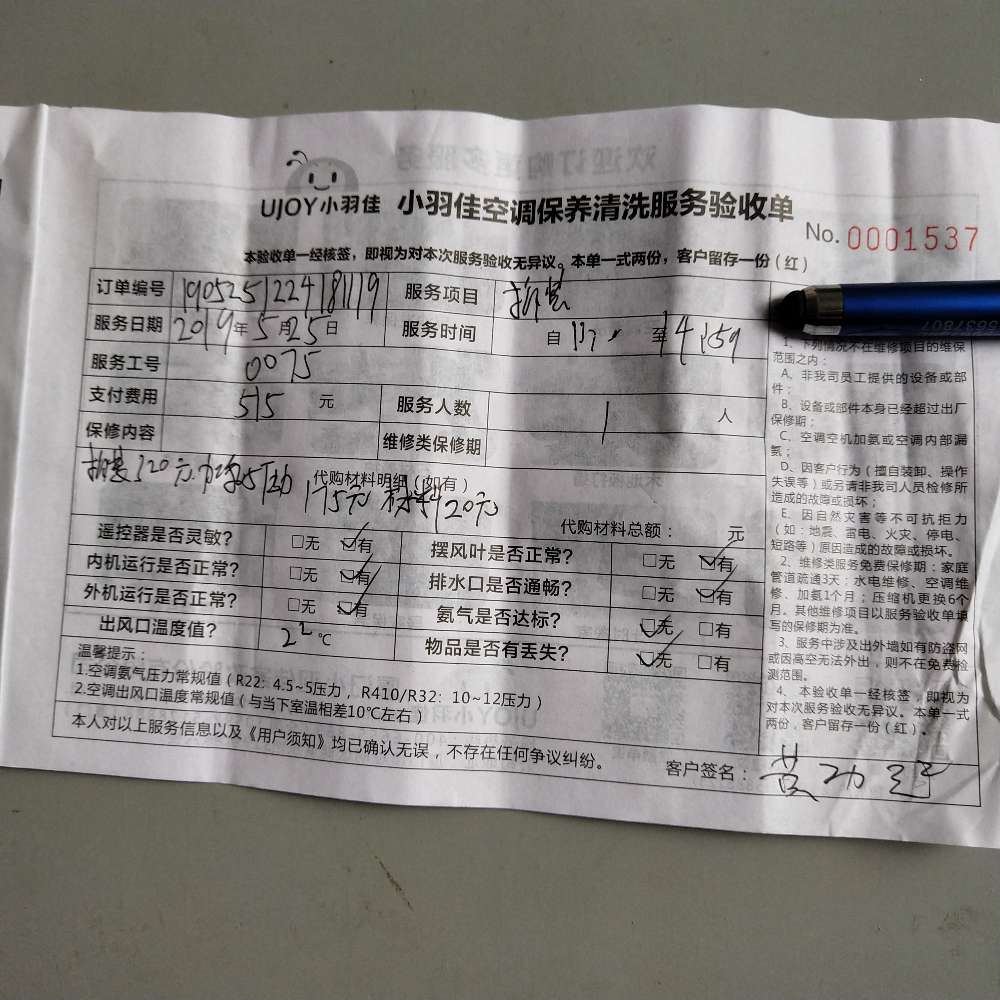 UJOY小羽佳 小羽佳空调保养清洗服务验收单
No. 0001537
本验收单一经核签，即视为对本次服务验收无异议。本单一式两份，客户留存一份（红）
订单编号 190525122418119 服务项目 拆装
服务日期 2019年5月25日 服务时间 自 至14:59
服务工号 0075
支付费用 515 元 服务人数 1 人
保修内容 维修类保修期
代购材料明细（如有）
拆装320元 175元 材料20元
代购材料总额： 元
遥控器是否灵敏？ □无 ☑有 摆风叶是否正常？ □无 ☑有
内机运行是否正常？ □无 ☑有 排水口是否通畅？ □无 ☑有
外机运行是否正常？ □无 ☑有 氨气是否达标？ ☑无 □有
出风口温度值？ 22 ℃ 物品是否有丢失？ ☑无 □有
温馨提示：
1.空调氨气压力常规值（R22：4.5~5压力， R410/R32：10~12压力）
2.空调出风口温度常规值（与当下室温相差10℃左右）
本人对以上服务信息以及《用户须知》均已确认无误，不存在任何争议纠纷。
客户签名：
1、下列情况不在维修项目的维保
范围之内：
A、非我司员工提供的设备或部
件；
B、设备或部件本身已经超过出厂
保修期；
C、空调空机加氨或空调内部漏
氨；
D、因客户行为（擅自装卸、操作
失误等）或另请非我司人员检修所
造成的故障或损坏；
E、因自然灾害等不可抗拒力
（如：地震、雷电、火灾、停电、
短路等）原因造成的故障或损坏。
2、维修类服务免费保修期：家庭
管道疏通3天；水电维修、空调维
修、加氨1个月；压缩机更换6个
月。其他维修项目以服务验收单填
写的保修期为准。
3、服务中涉及出外墙如有防盗网
或因高空无法外出，则不在免费检
测范围。
4、本验收单一经核签，即视为
对本次服务验收无异议。本单一式
两份，客户留存一份（红）。